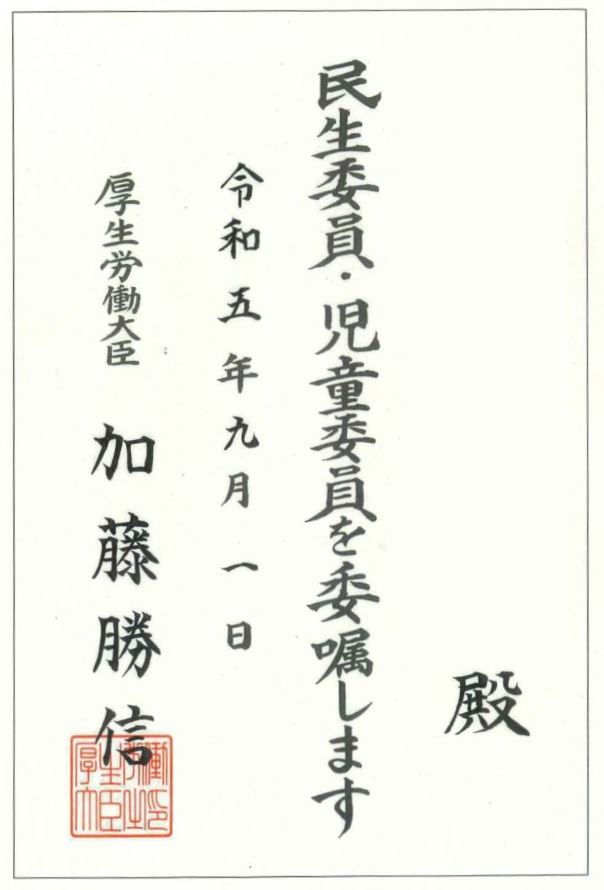 殿
民生委員・児童委員を委嘱します
令和五年九月一日
厚生労働大臣 加藤勝信
厚生労働大臣之印